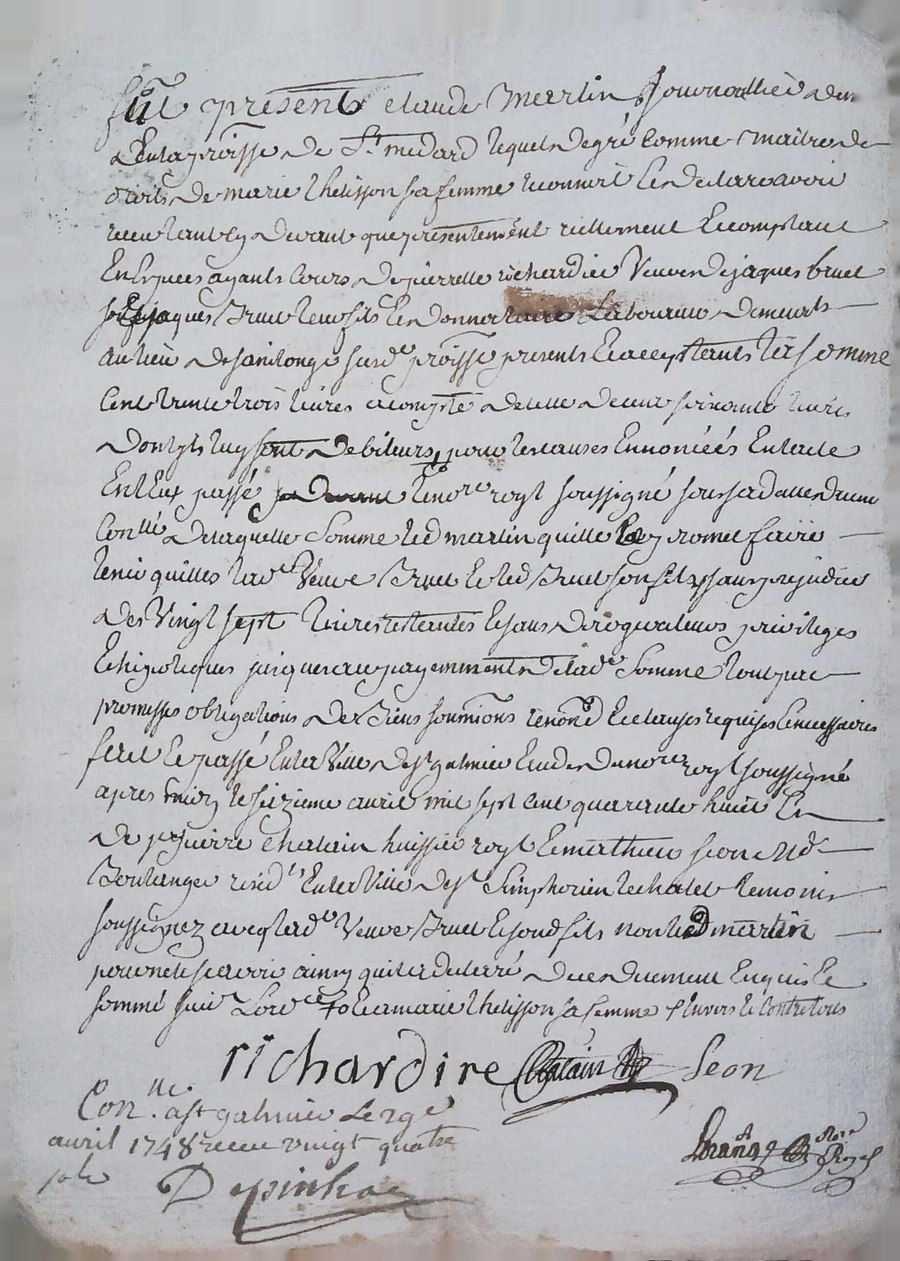 fut present claude martin Journallier dem
dent la proisse de St medard lequel de gré comme maitre des
droits de marie thelisson sa femme reconnoit Et declare avoir
receu tant cy devant que presentement reellement Et comptant
En Especes ayants Cours de pierrette richardier Veuve de jaques bruel
jaques Bruel leur fils Et donnataire Laboureur demeurants
au lieu de sur de proisse presents Et acceptants la somme
Cent trente trois livres a compte de celle de cent soixante livres
dont ils luy sont debiteurs, pour les causes Ennoncéés En lacte
Entreux passé le nore royl soussigné sous sa datte duem
Conlle de laquelle Somme led martin quitte Et promet faire
tenir quittes lad e Veuve Bruel Et led Bruel son fils sans prejudice
des Vingt sept livres restantes Et sans derroger a leurs privileges
Et hipoteques jusques au payemments de lad e Somme tout par
promesses obligations de Biens soumions renond Et clauses requises Et necessaires
fait Et passé En la Ville de st galmier Etude du nore royl soussigné
apres midy le sizieme avril mil sept cent quarante huit En
de sr pierre chatain huissier royl Et mathieu seon md
Boulanger resid ts En la Ville de st Simphorien le chatel temoins
soussignez avec lad e Veuve Bruel Et sond fils non led martin
pour ne le scavoir ainsy quil a declaré de ce duement Enquis Et
sommé suiv t Lord ce Et marie thelisson sa femme Envers Et Contre tous
richardire Chatain Seon
Con.lle a st galmier Le
avril 1748 receu vingt quatre
sols
Depinhac
Nore Royal